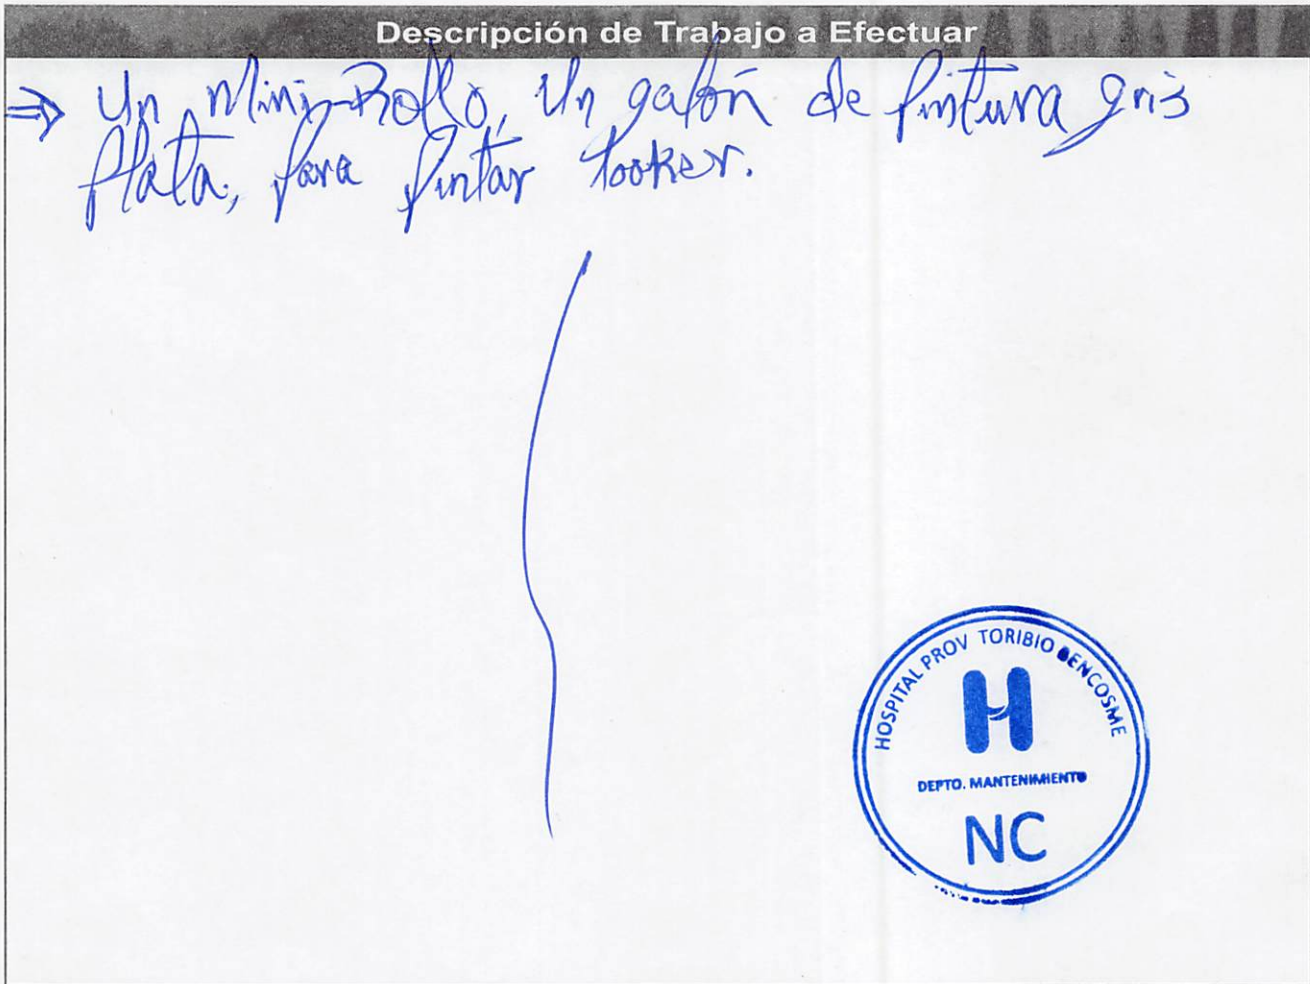 Descripción de Trabajo a Efectuar
⇒ Un Mini-Rollo, Un galón de Pintura gris
Plata, para Pintar Looker.
HOSPITAL PROV TORIBIO BENCOSME
H
DEPTO. MANTENIMIENTO
NC